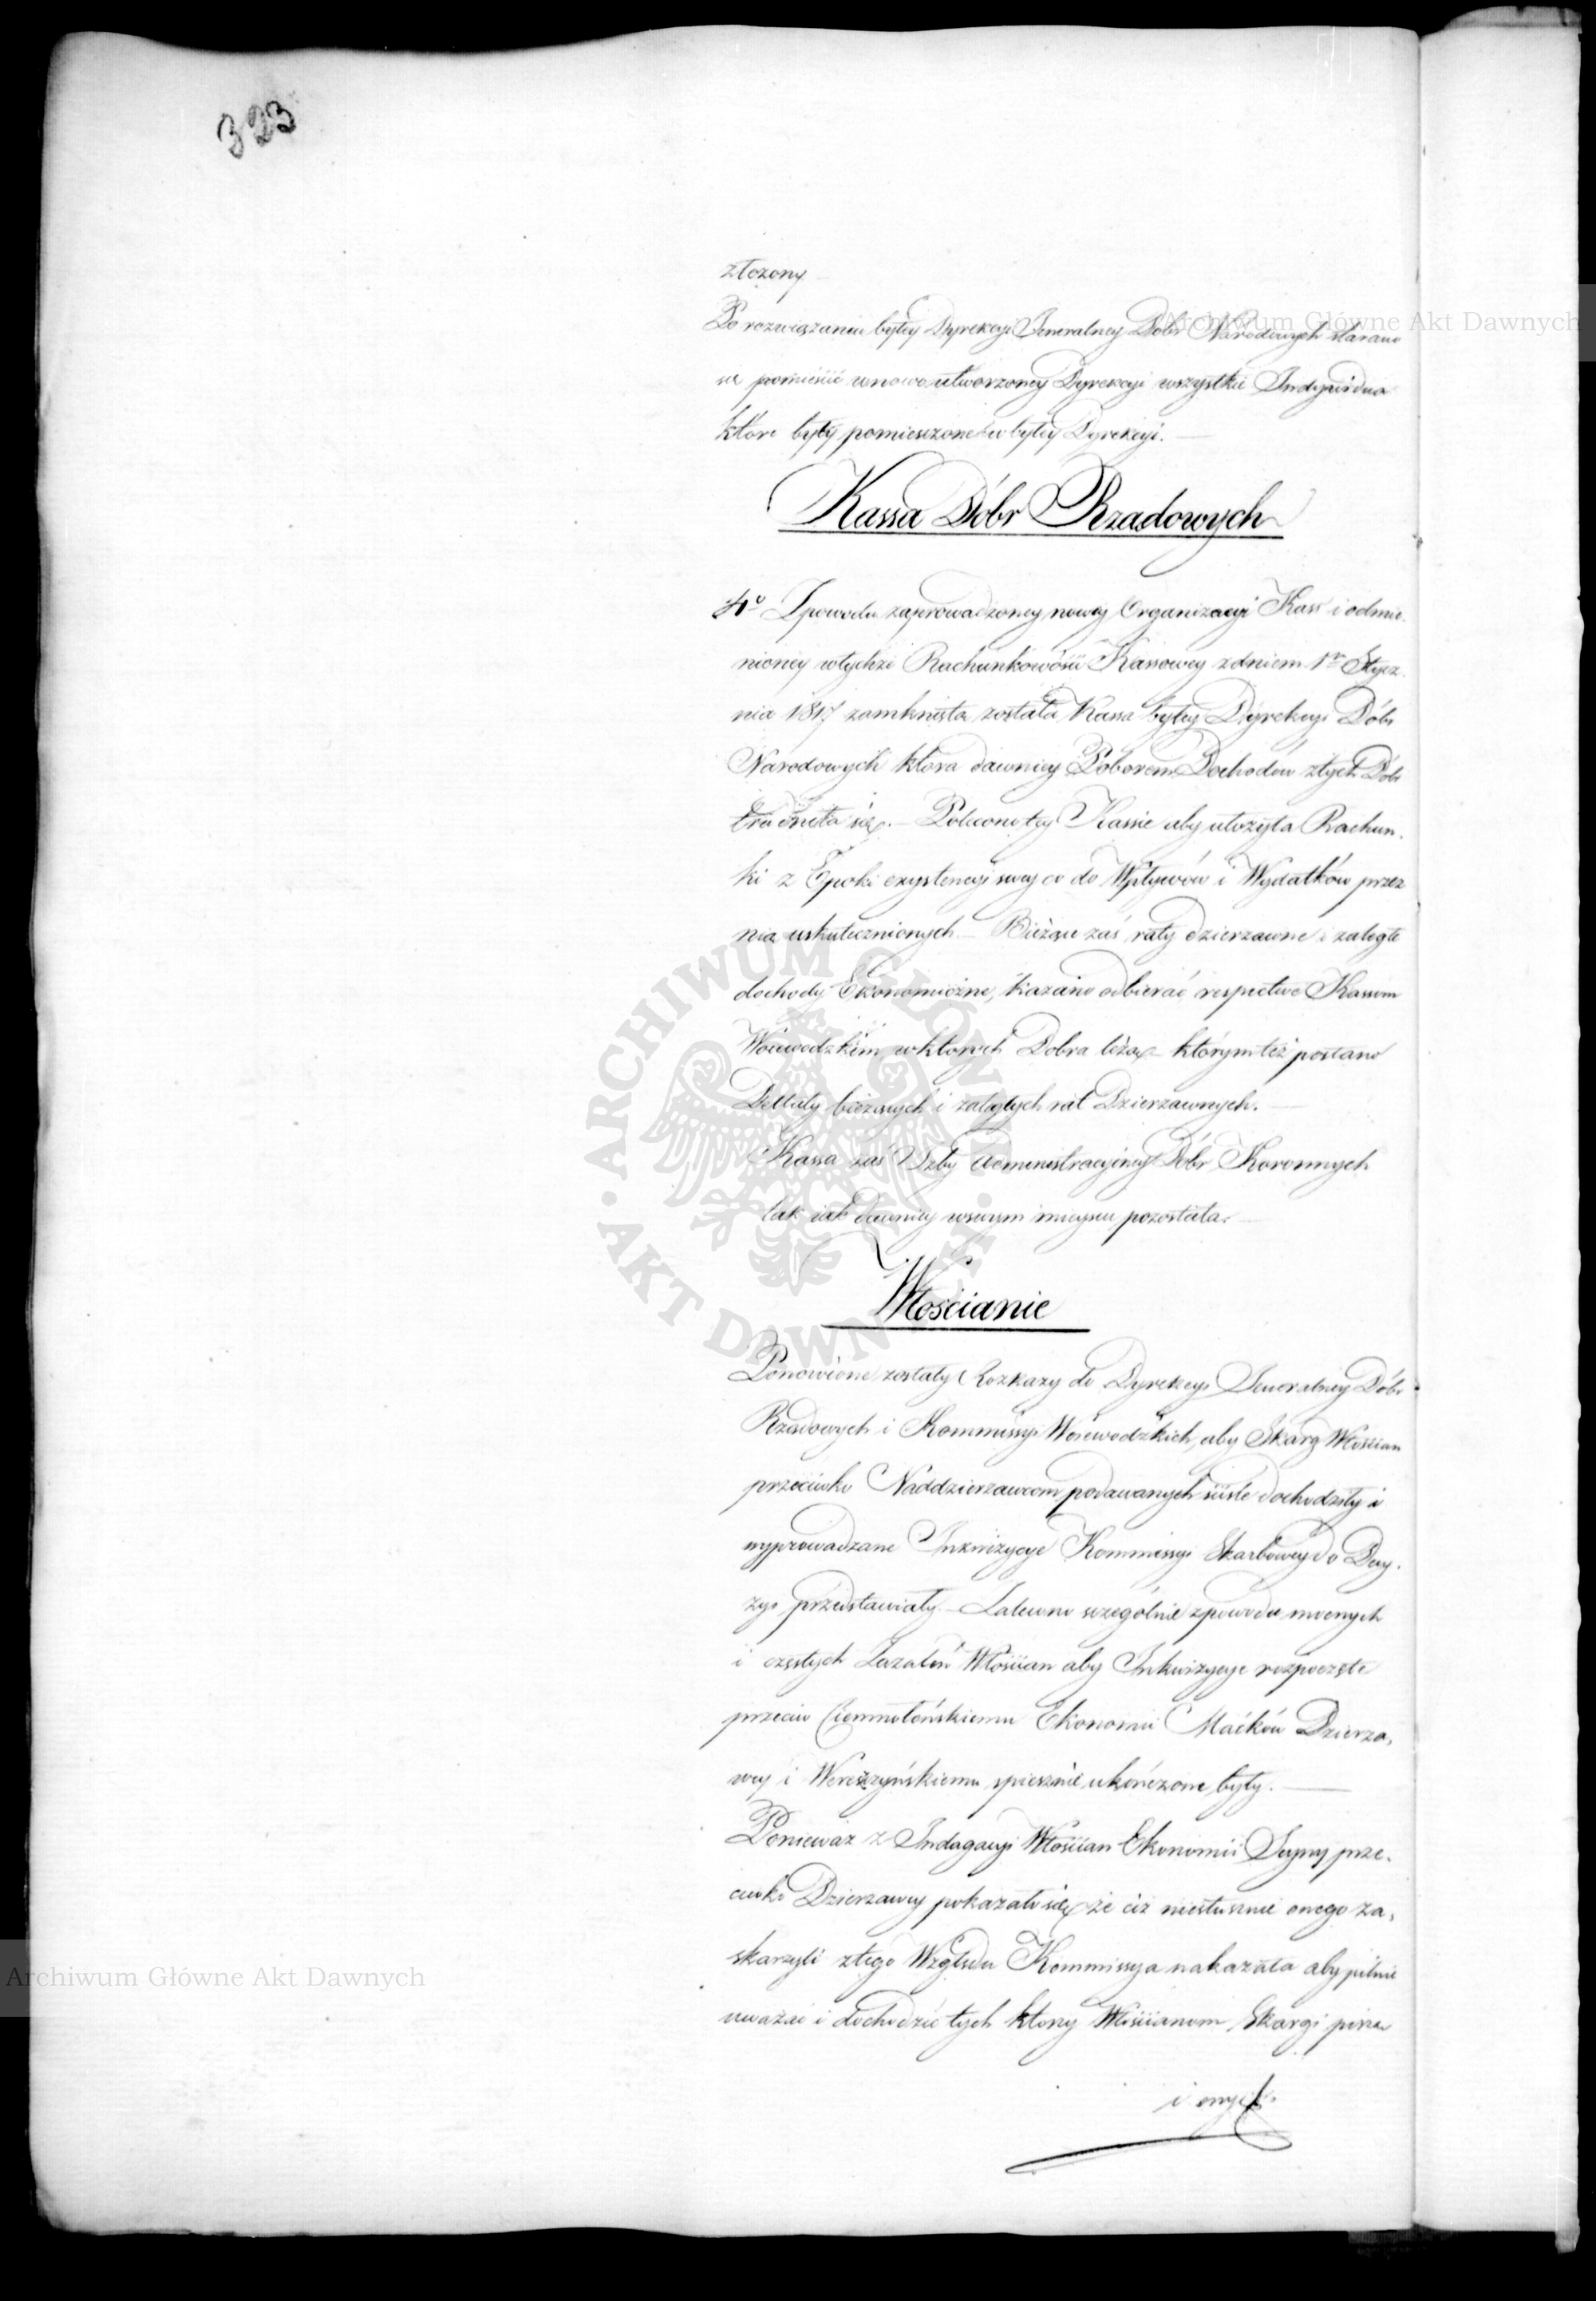 323
złożony
Po rozwiązaniu byłey Dyrekcyi Jeneralney Dóbr Narodowych starano
się pomieścić w nowo utworzoney Dyrekcyi wszystkie Indywidua
które były pomieszczone w byłey Dyrekcyi.
Kassa Dóbr Rządowych
4o Z powodu zaprowadzoney nowey Organizacyi Kass i odmie-
nioney w tychże Rachunkowości Kassowey z dniem 1m Stycz-
nia 1817 zamknięta została Kassa byłey Dyrekcyi Dóbr
Narodowych która dawniey Poborem Dochodów z tych Dóbr
trudniła się. Polecono tey Kassie aby ułożyła Rachun-
ki z Epoki exystencyi swey co do Wpływów i Wydatków przez
nią uskutecznionych. Bieżące zaś raty dzierżawne i zaległe
dochody Ekonomiczne, kazano odbierać respective Kassom
Woiewodzkim w których Dobra leżą którym też posłano
bieżących i zaległych rat Dzierżawnych.
Kassa zaś Izby Administracyiney Dóbr Koronnych
tak iak dawniey w swym mieyscu pozostała.
Włościanie
Ponowione zostały Rozkazy do Dyrekcyi Jeneralney Dóbr
Rządowych i Kommissyi Woiewodzkich, aby Skarg Włościan
przeciwko Naddzierzawcom podawanych ściśle dochodziły i
wyprowadzane Inkwizycye Kommissyi Skarbowey do Decy-
zyi przedstawiały. Zalecono szczególnie z powodu mocnych
i częstych Zażaleń Włościan aby Inkwizycye rozpoczęte
przeciw Ekonomii Maćków Dzierża-
wcy i Wereszczyńskiemu spiesznie ukończone były.
Ponieważ z Indagacyi Włościan Ekonomii Seyny prze-
ciwko Dzierzawcy pokazało się że ciż niesłusznie onego za-
skarzyli z tego Względu Kommissya nakazała aby pilnie
uważać i dochodzić tych którzy Włościanom Skargi piszą
i onych
Archiwum Główne Akt Dawnych
Archiwum Główne Akt Dawnych
ARCHIWUM GŁÓWNE · AKT DAWNYCH ·